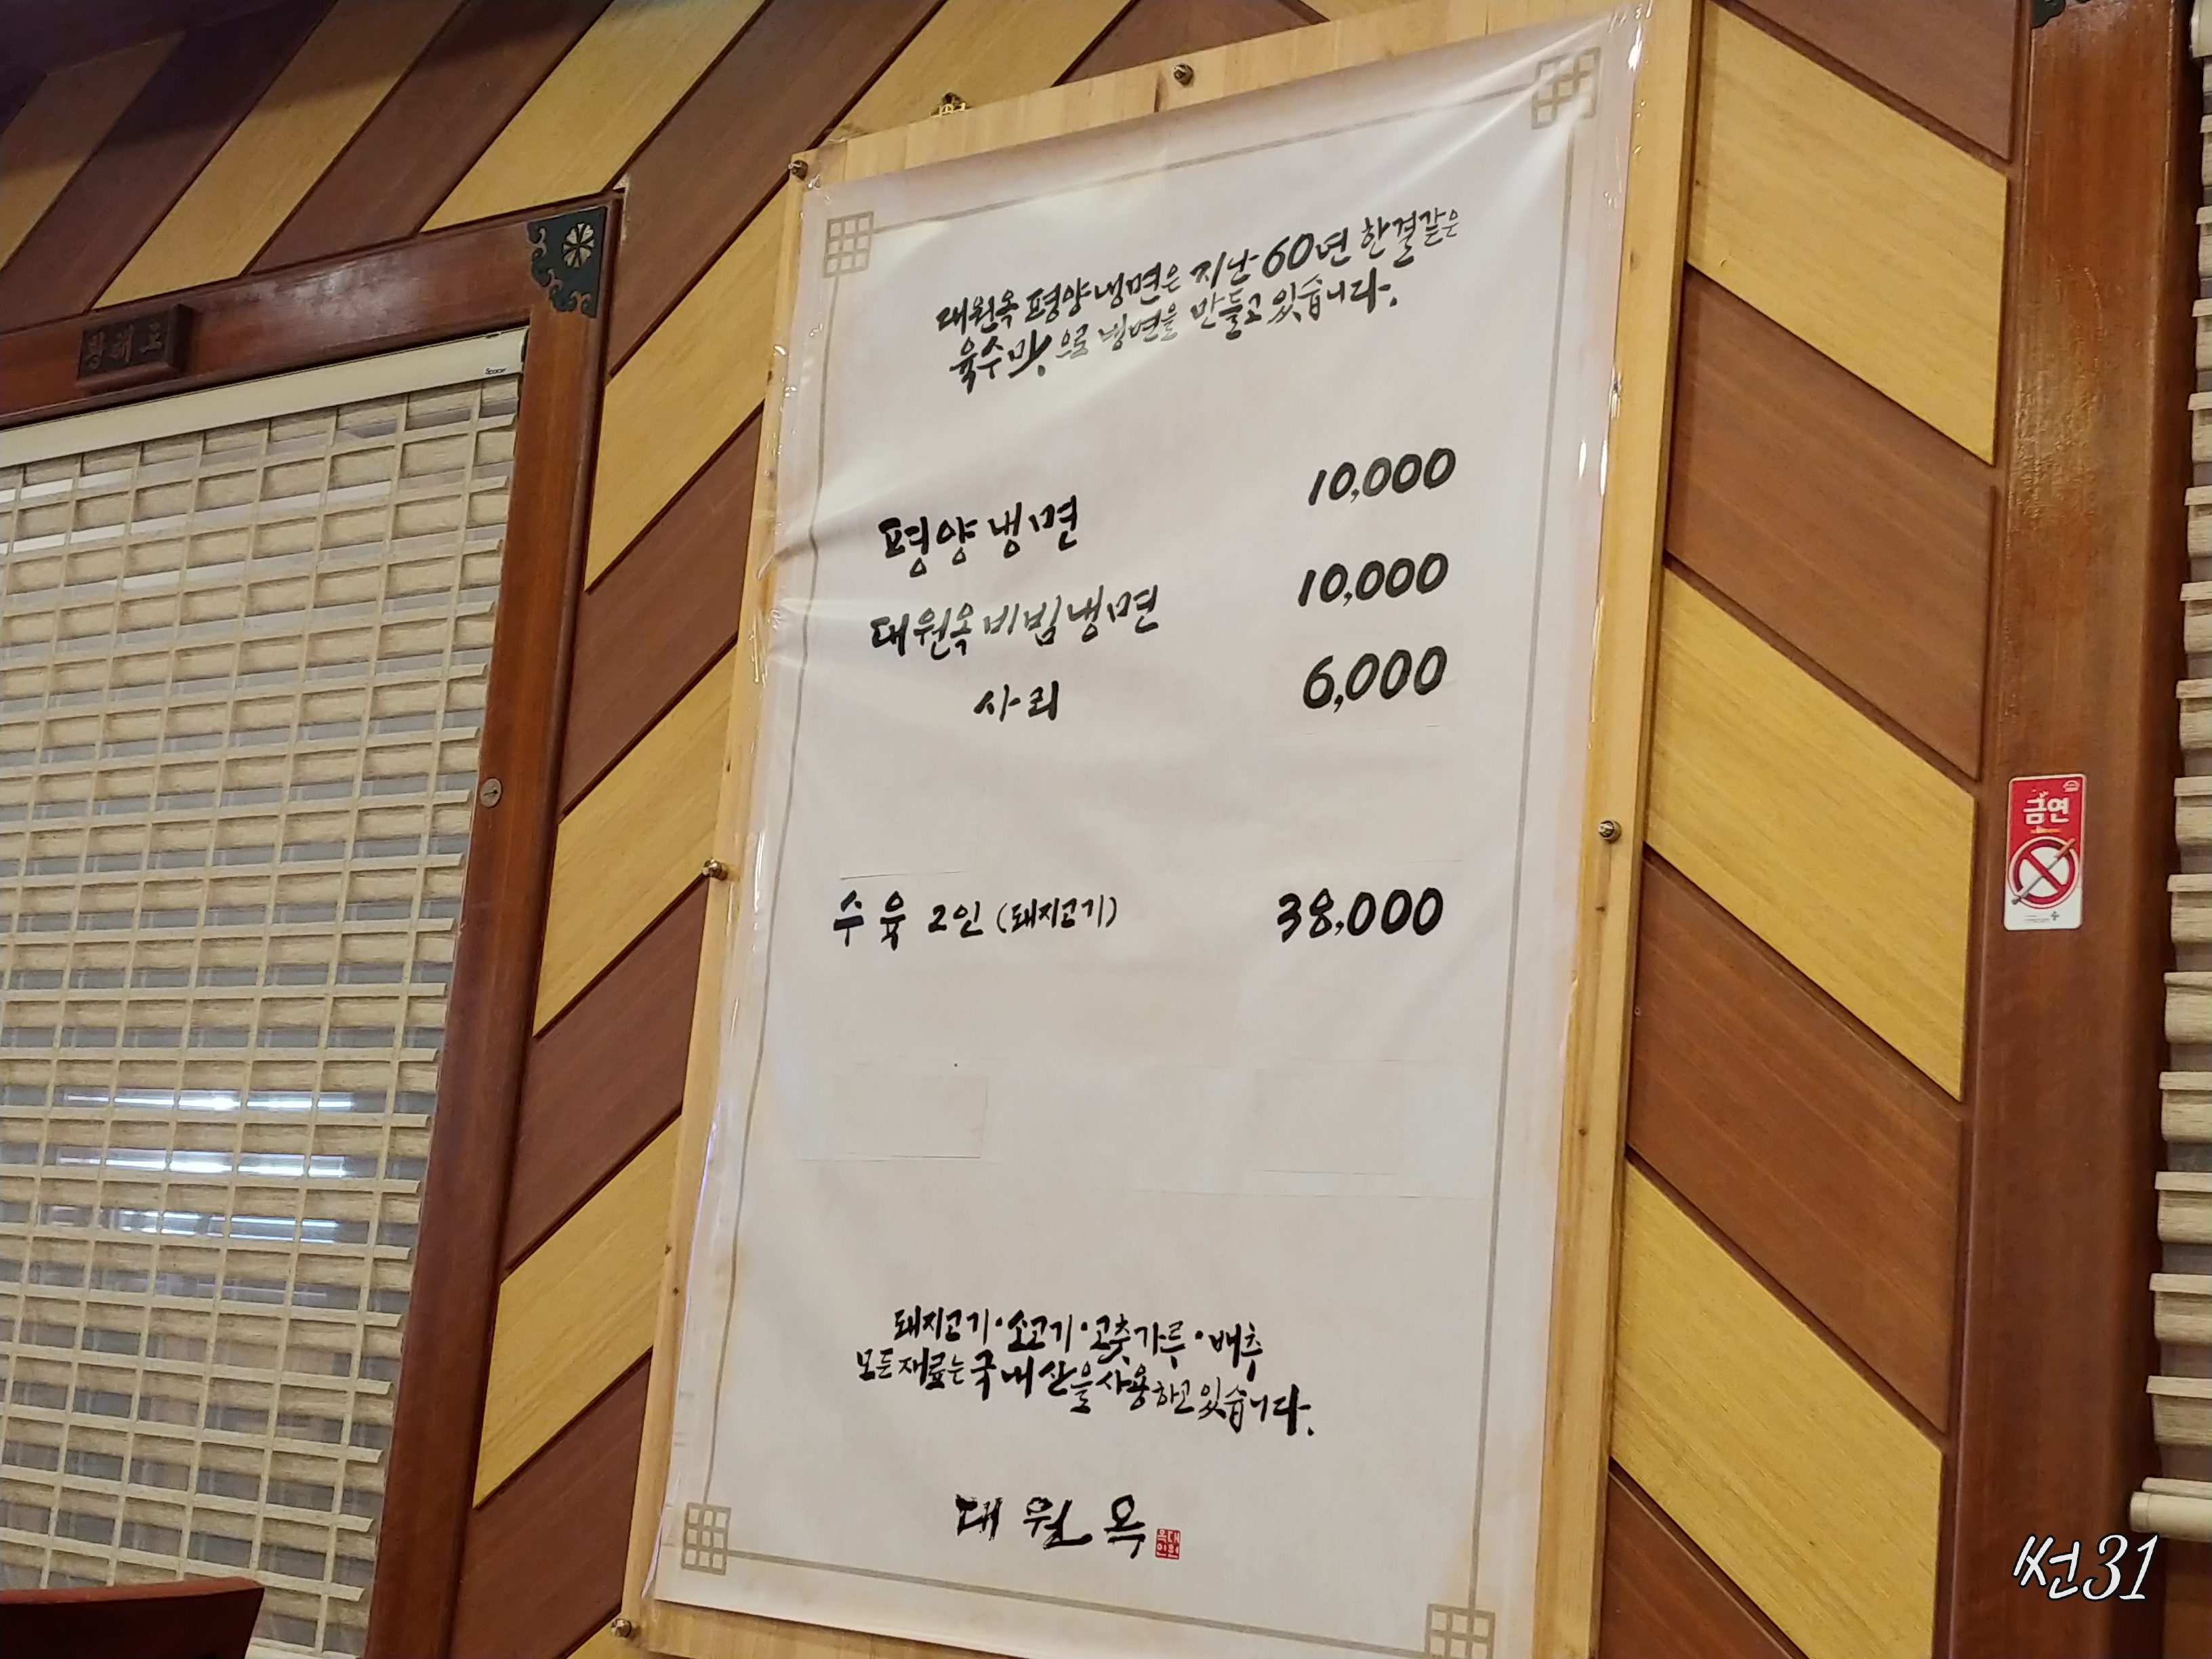 대원옥 평양냉면은 지난 60년 한결같은
육수맛으로 냉면을 만들고 있습니다.
평양냉면 10,000
대원옥비빔냉면 10,000
사리 6,000
수육 2인 (돼지고기) 38,000
돼지고기·소고기·고춧가루·배추
모든재료는 국내산을 사용하고 있습니다.
대원옥
금연
쏜31